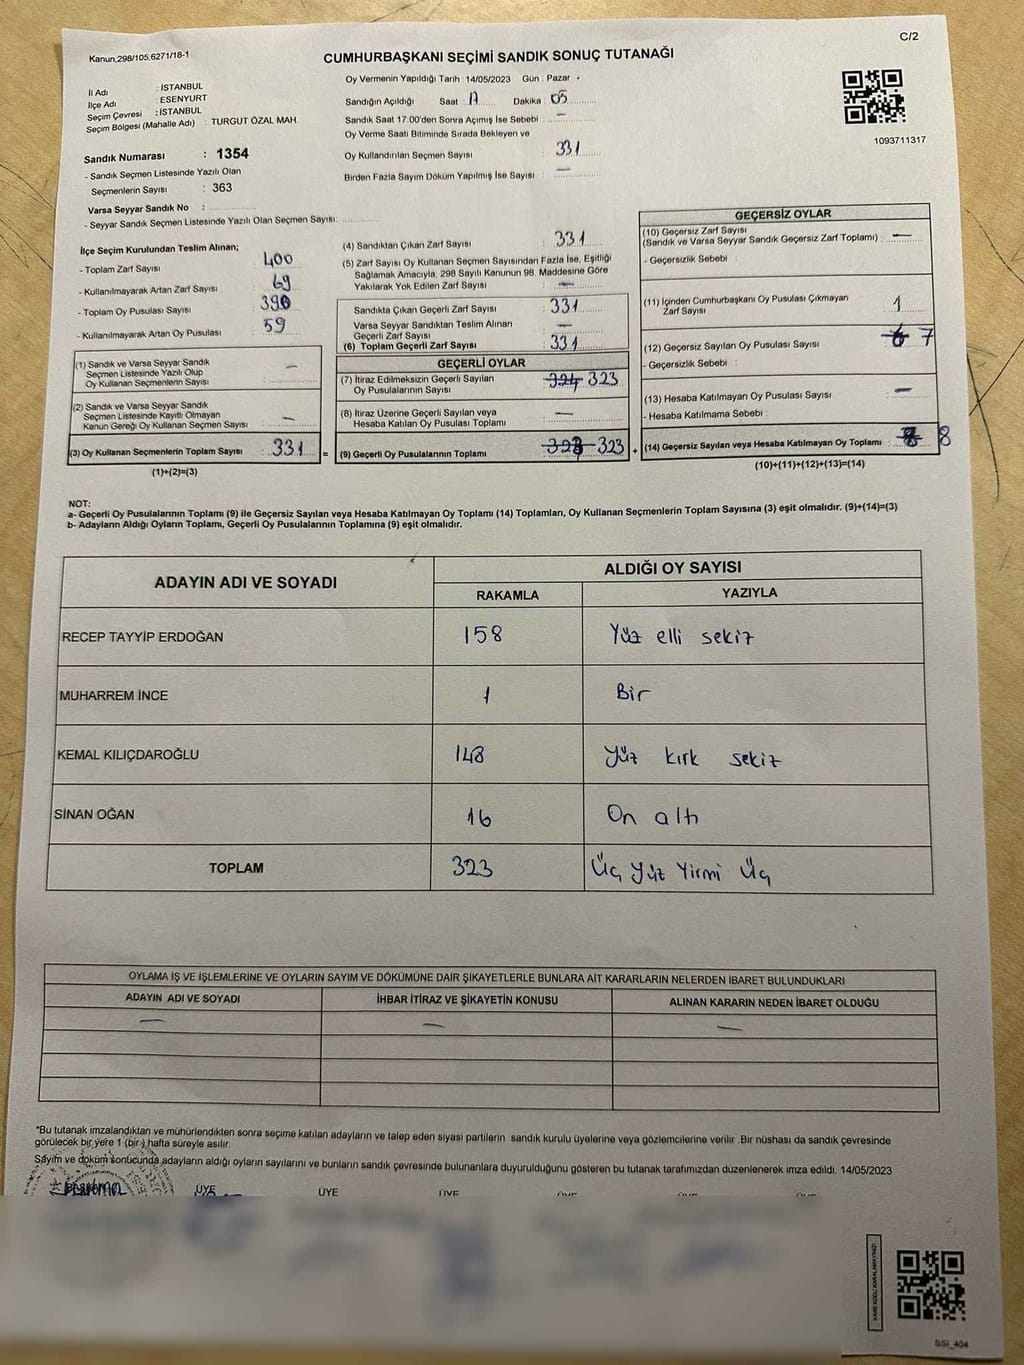 C/2
Kanun,298/105;6271/18-1
CUMHURBAŞKANI SEÇİMİ SANDIK SONUÇ TUTANAĞI
İl Adı : İSTANBUL
İlçe Adı : ESENYURT
Seçim Çevresi : İSTANBUL
Seçim Bölgesi (Mahalle Adı) : TURGUT ÖZAL MAH.
Sandık Numarası : 1354
- Sandık Seçmen Listesinde Yazılı Olan
Seçmenlerin Sayısı : 363
Varsa Seyyar Sandık No :
- Seyyar Sandık Seçmen Listesinde Yazılı Olan Seçmen Sayısı:
Oy Vermenin Yapıldığı Tarih : 14/05/2023 Gün : Pazar
Sandığın Açıldığı Saat : 17 Dakika : 05
Sandık Saat 17:00'den Sonra Açımış İse Sebebi : —
Oy Verme Saati Bitiminde Sırada Bekleyen ve
Oy Kullandırılan Seçmen Sayısı : 331
Birden Fazla Sayım Döküm Yapılmış İse Sayısı : —
1093711317
İlçe Seçim Kurulundan Teslim Alınan;
- Toplam Zarf Sayısı : 400
- Kullanılmayarak Artan Zarf Sayısı : 69
- Toplam Oy Pusulası Sayısı : 390
- Kullanılmayarak Artan Oy Pusulası : 59
(1) Sandık ve Varsa Seyyar Sandık
Seçmen Listesinde Yazılı Olup
Oy Kullanan Seçmenlerin Sayısı : —
(2) Sandık ve Varsa Seyyar Sandık
Seçmen Listesinde Kayıtlı Olmayan
Kanun Gereği Oy Kullanan Seçmen Sayısı : —
(3) Oy Kullanan Seçmenlerin Toplam Sayısı : 331 =
(1)+(2)=(3)
(4) Sandıktan Çıkan Zarf Sayısı : 331
(5) Zarf Sayısı Oy Kullanan Seçmen Sayısından Fazla İse, Eşitliği
Sağlamak Amacıyla, 298 Sayılı Kanunun 98. Maddesine Göre
Yakılarak Yok Edilen Zarf Sayısı : —
Sandıkta Çıkan Geçerli Zarf Sayısı : 331
Varsa Seyyar Sandıktan Teslim Alınan
Geçerli Zarf Sayısı : —
(6) Toplam Geçerli Zarf Sayısı : 331
GEÇERLİ OYLAR
(7) İtiraz Edilmeksizin Geçerli Sayılan
Oy Pusulalarının Sayısı : 323
(8) İtiraz Üzerine Geçerli Sayılan veya
Hesaba Katılan Oy Pusulaları Toplamı : —
(9) Geçerli Oy Pusulalarının Toplamı : 323 +
GEÇERSİZ OYLAR
(10) Geçersiz Zarf Sayısı
(Sandık ve Varsa Seyyar Sandık Geçersiz Zarf Toplamı) : —
- Geçersizlik Sebebi :
(11) İçinden Cumhurbaşkanı Oy Pusulası Çıkmayan
Zarf Sayısı : 1
(12) Geçersiz Sayılan Oy Pusulası Sayısı : 6 7
- Geçersizlik Sebebi :
(13) Hesaba Katılmayan Oy Pusulası Sayısı : —
- Hesaba Katılmama Sebebi :
(14) Geçersiz Sayılan veya Hesaba Katılmayan Oy Toplamı : 8
(10)+(11)+(12)+(13)=(14)
NOT:
a- Geçerli Oy Pusulalarının Toplamı (9) ile Geçersiz Sayılan veya Hesaba Katılmayan Oy Toplamı (14) Toplamları, Oy Kullanan Seçmenlerin Toplam Sayısına (3) eşit olmalıdır. (9)+(14)=(3)
b- Adayların Aldığı Oyların Toplamı, Geçerli Oy Pusulalarının Toplamına (9) eşit olmalıdır.
ADAYIN ADI VE SOYADI ALDIĞI OY SAYISI
RAKAMLA YAZIYLA
RECEP TAYYİP ERDOĞAN 158 Yüz elli sekiz
MUHARREM İNCE 1 Bir
KEMAL KILIÇDAROĞLU 148 Yüz kırk sekiz
SİNAN OĞAN 16 On altı
TOPLAM 323 Üç Yüz Yirmi Üç
OYLAMA İŞ VE İŞLEMLERİNE VE OYLARIN SAYIM VE DÖKÜMÜNE DAİR ŞİKAYETLERLE BUNLARA AİT KARARLARIN NELERDEN İBARET BULUNDUKLARI
ADAYIN ADI VE SOYADI İHBAR İTİRAZ VE ŞİKAYETİN KONUSU ALINAN KARARIN NEDEN İBARET OLDUĞU
— — —
*Bu tutanak imzalandıktan ve mühürlendikten sonra seçime katılan adayların ve talep eden siyasi partilerin sandık kurulu üyelerine veya gözlemcilerine verilir .Bir nüshası da sandık çevresinde
görülecek bir yere 1 (bir ) hafta süreyle asılır.
Sayım ve döküm sonucunda adayların aldığı oyların sayılarını ve bunların sandık çevresinde bulunanlara duyurulduğunu gösteren bu tutanak tarafımızdan düzenlenerek imza edildi. 14/05/2023
ÜYE ÜYE ÜYE ÜYE ÜYE ÜYE
KARE KODU KARALAMAYINIZ!
SSI_404